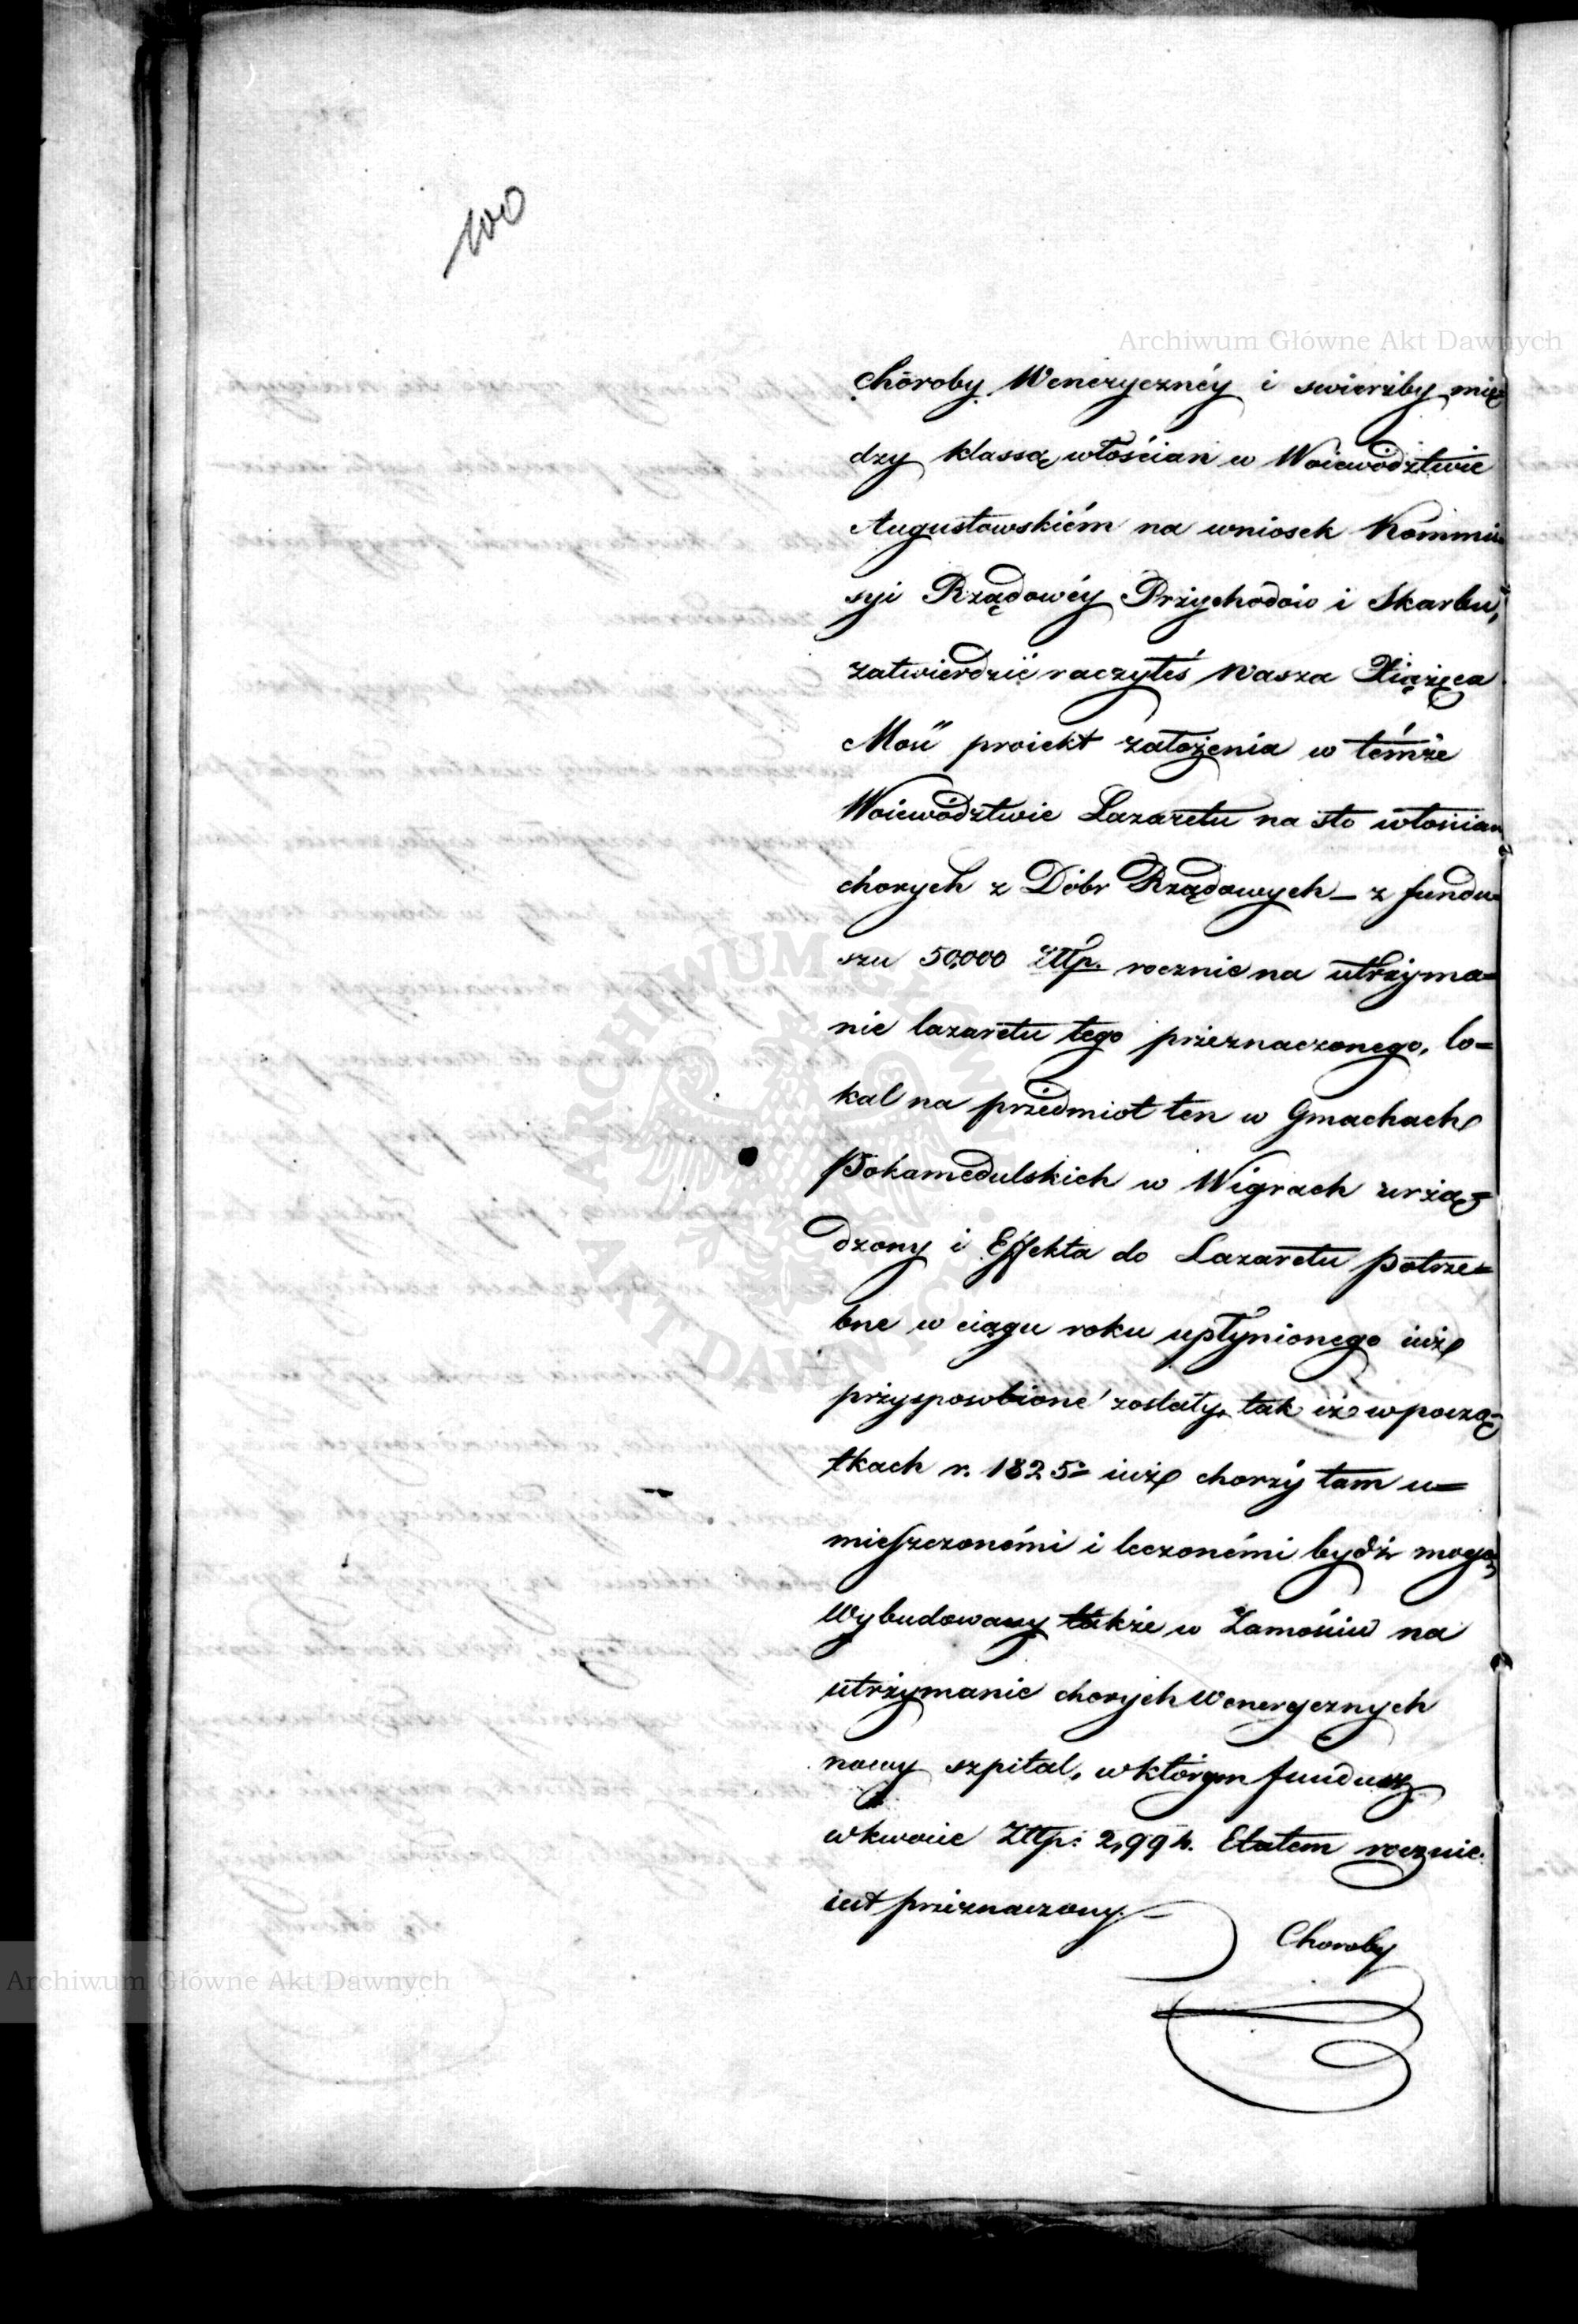 100
Archiwum Główne Akt Dawnych
choroby Weneryczney i swierzby mię
dzy klassą włościan w Woiewództwie
Augustowskiém na wniosek Kommis
syi Rządowéy Przychodów i Skarbu,
zatwierdzić raczyłeś Wasza Xiążęca
Mość proiekt założenia w témże
Woiewództwie Lazaretu na sto włościan
chorych z Dóbr Rządowych – z fundu
szu 50,000 Złtp. rocznie na utrzyma=
nie lazaretu tego przeznaczonego, lo=
kal na przedmiot ten w Gmachach
Pokamedulskich w Wigrach urzą=
dzony i Effekta do Lazaretu potrze=
bne w ciągu roku upłynionego iuż
przysposobione zostały, tak iż w począ=
tkach r. 1825º iuż chorzy tam u=
mieszczonémi i leczonémi bydź mogą,
Wybudowany także w Zamościu na
utrzymanie chorych Wenerycznych
nowy szpital, w którym fundusz
w kwocie Złtp: 2,994. Etatem rocznie
iest przeznaczony. –
Choroby
Archiwum Główne Akt Dawnych
ARCHIWUM GŁÓWNE AKT DAWNYCH